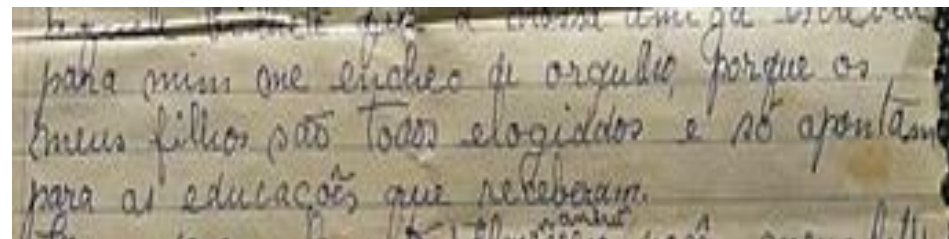 a nossa amiga escreveu
para mim me encheo de orgulho, porque os
meus filhos são todos elogiddos e só apontam
para as educações que receberam.